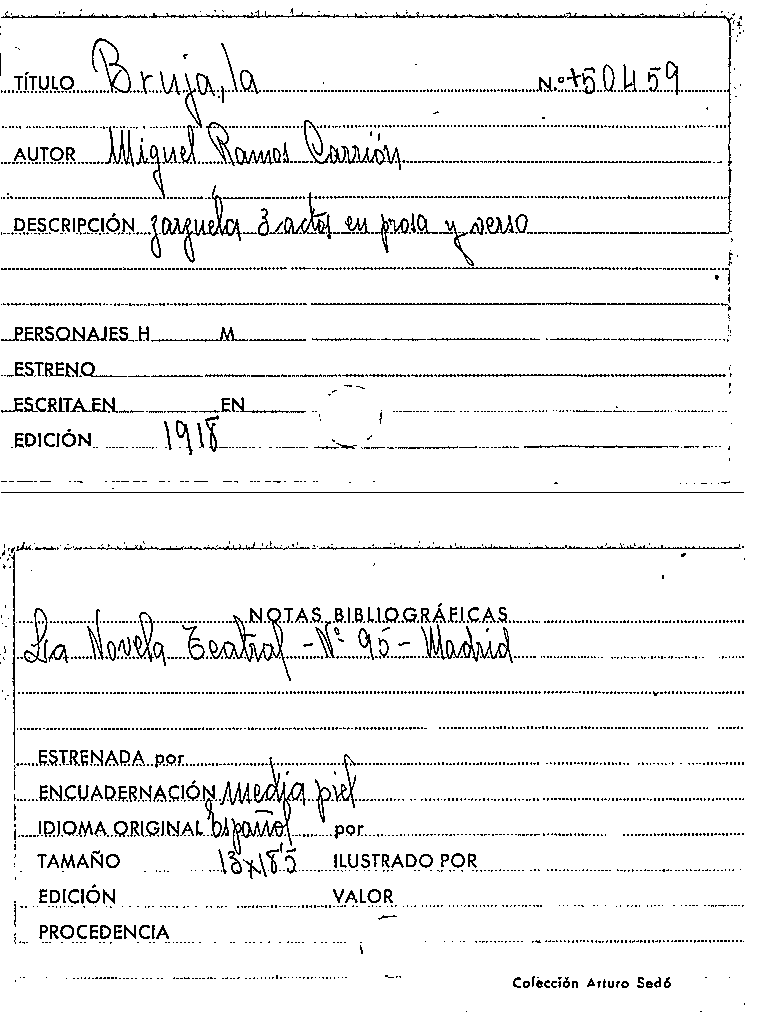 TÍTULO Bruja, la N.º +50459
AUTOR Miguel Ramos Carrión
DESCRIPCIÓN zarzuela 3 actos en prosa y verso
PERSONAJES H M
ESTRENO
ESCRITA EN EN
EDICIÓN 1918
NOTAS BIBLIOGRÁFICAS
La Novela Teatral - Nº 95 - Madrid
ESTRENADA por
ENCUADERNACIÓN media piel
IDIOMA ORIGINAL Español por
TAMAÑO 13x18'5 ILUSTRADO POR
EDICIÓN VALOR
PROCEDENCIA
Colección Arturo Sedó